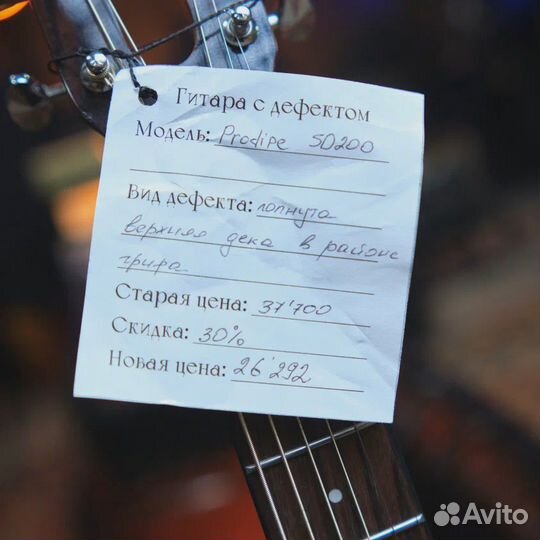 Гитара с дефектом
Модель: Prodipe SD200
Вид дефекта: лопнута
верхняя дека в районе
грифа
Старая цена: 37'700
Скидка: 30%
Новая цена: 26'292
Avito